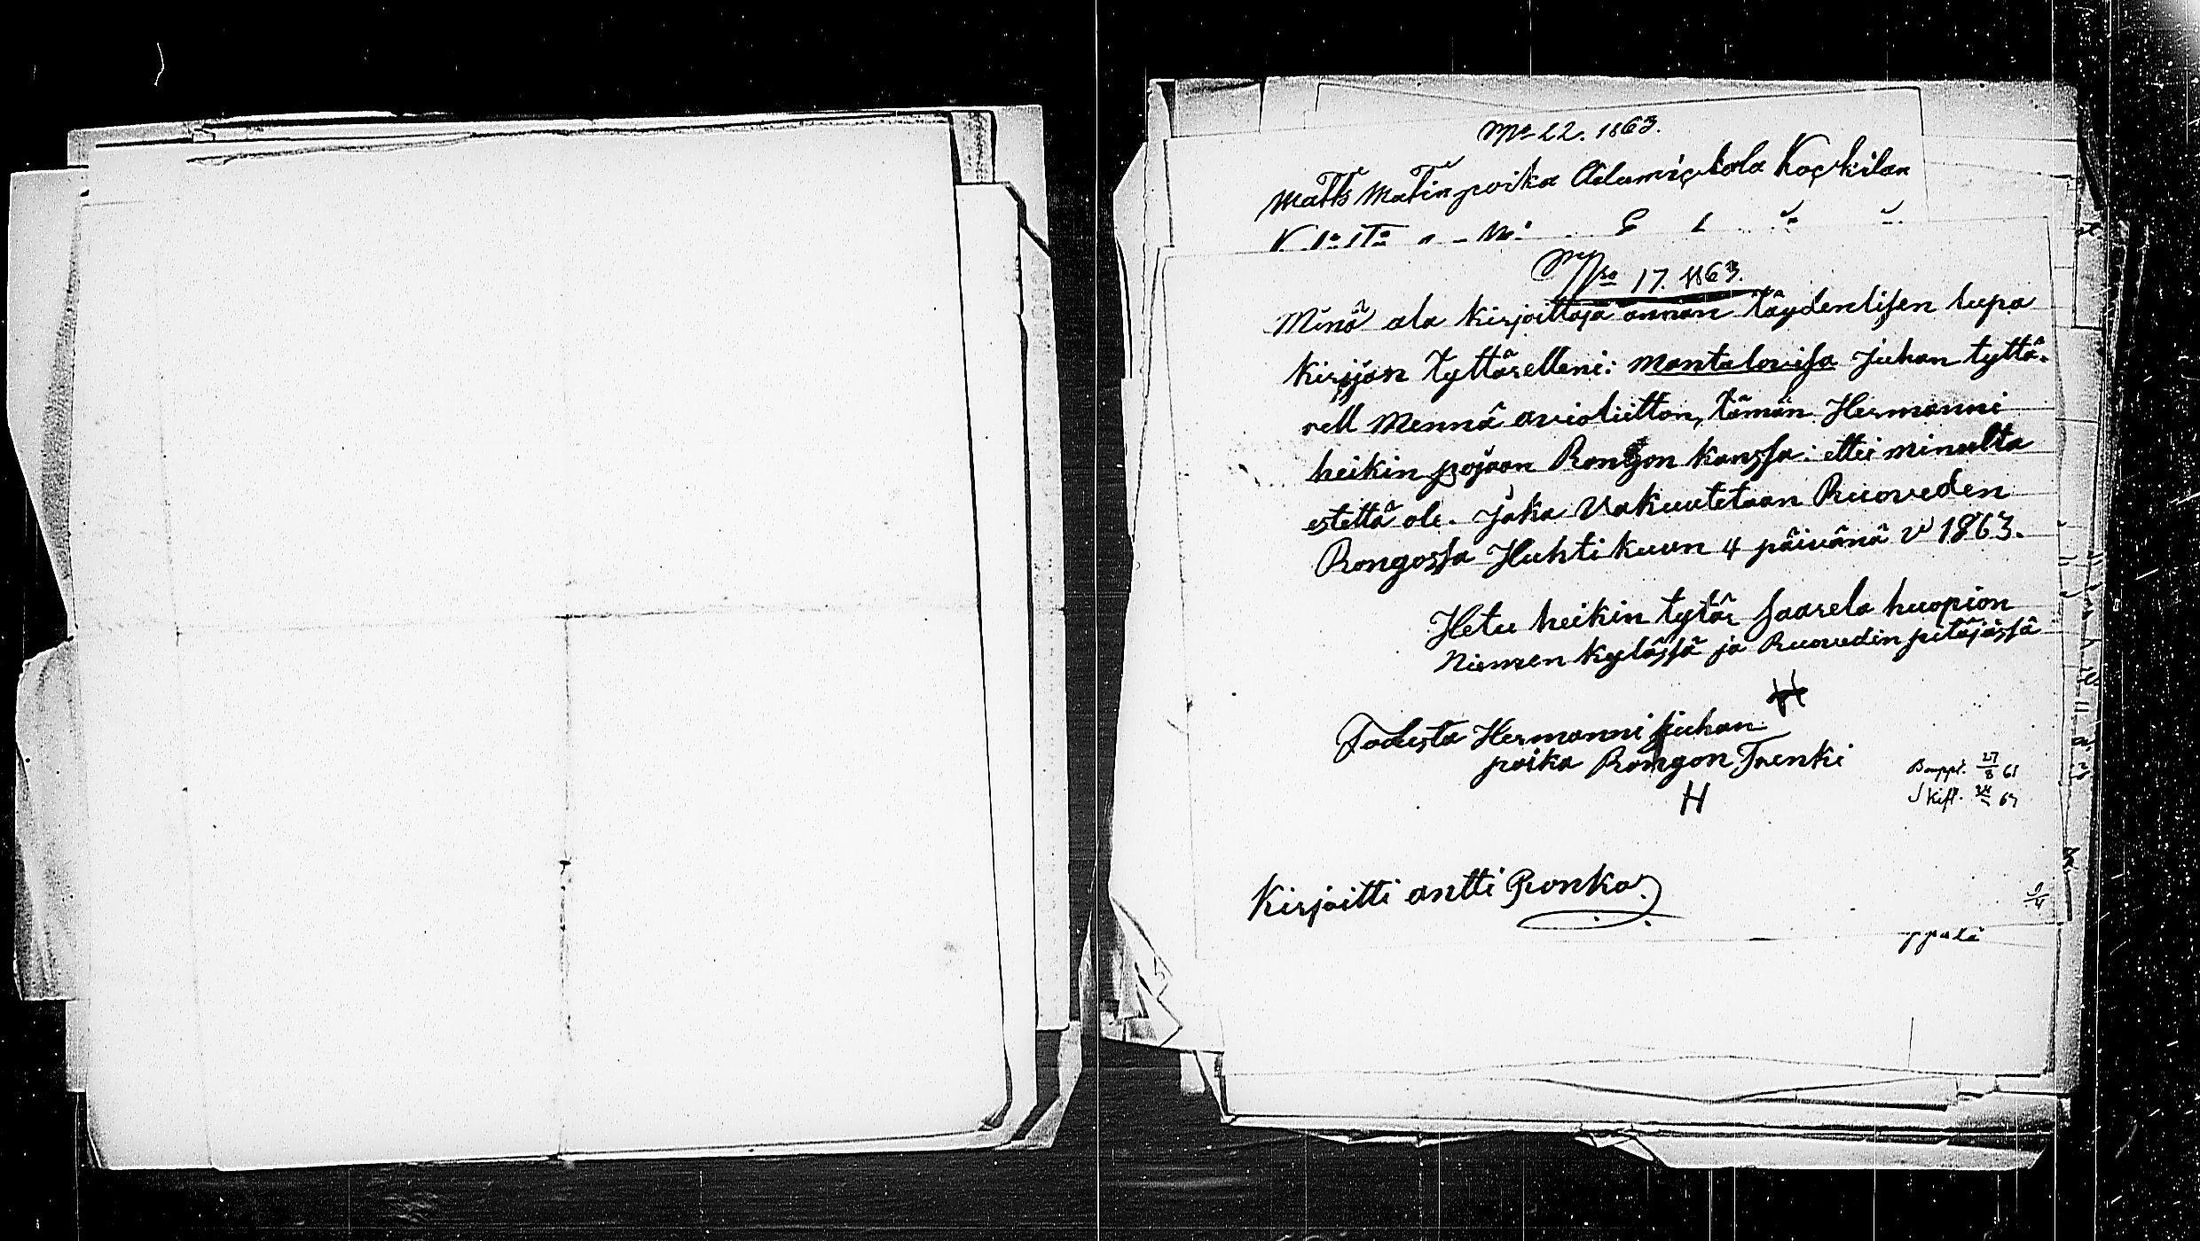 No 22. 1863.
Matts Matin poika Alamiskola Koskilan
Nro 17. 1863.
Minä ala kirjoittaja annan täydenlisen lupa
kirjan tyttärelleni: Mantalovisa Juhan tyttä-
rell Mennä avioliitton, tämän Hermanni
heikin pojaan Rongon kanssa: ettei minulta
estettä ole. Joka Vakuutetaan Ruoveden
Rongossa Huhti kuun 4 päivänä v 1863.
Hetu heikin tytär saarela huopion
Niemen kylässä ja Ruovedin pitäjässä
H
Todista Hermanni Juhan
poika Rongon Trenki
H
Kirjoitti antti Ronka.